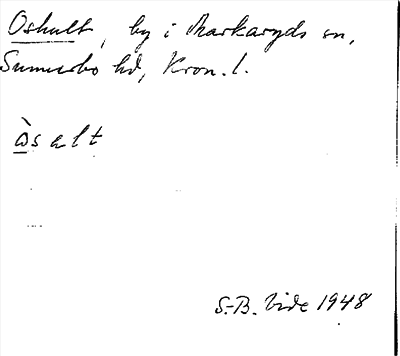 Oshult, by i Markaryds sn,
Sunnerbo hd, Kron. l.
òsalt
S.-B. Vide 1948